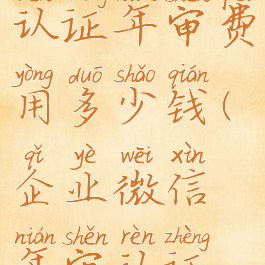 认证年审费
yòng duō shǎo qián
用多少钱(
qǐ yè wēi xìn
企业微信
nián shěn rèn zhèng
年审认证